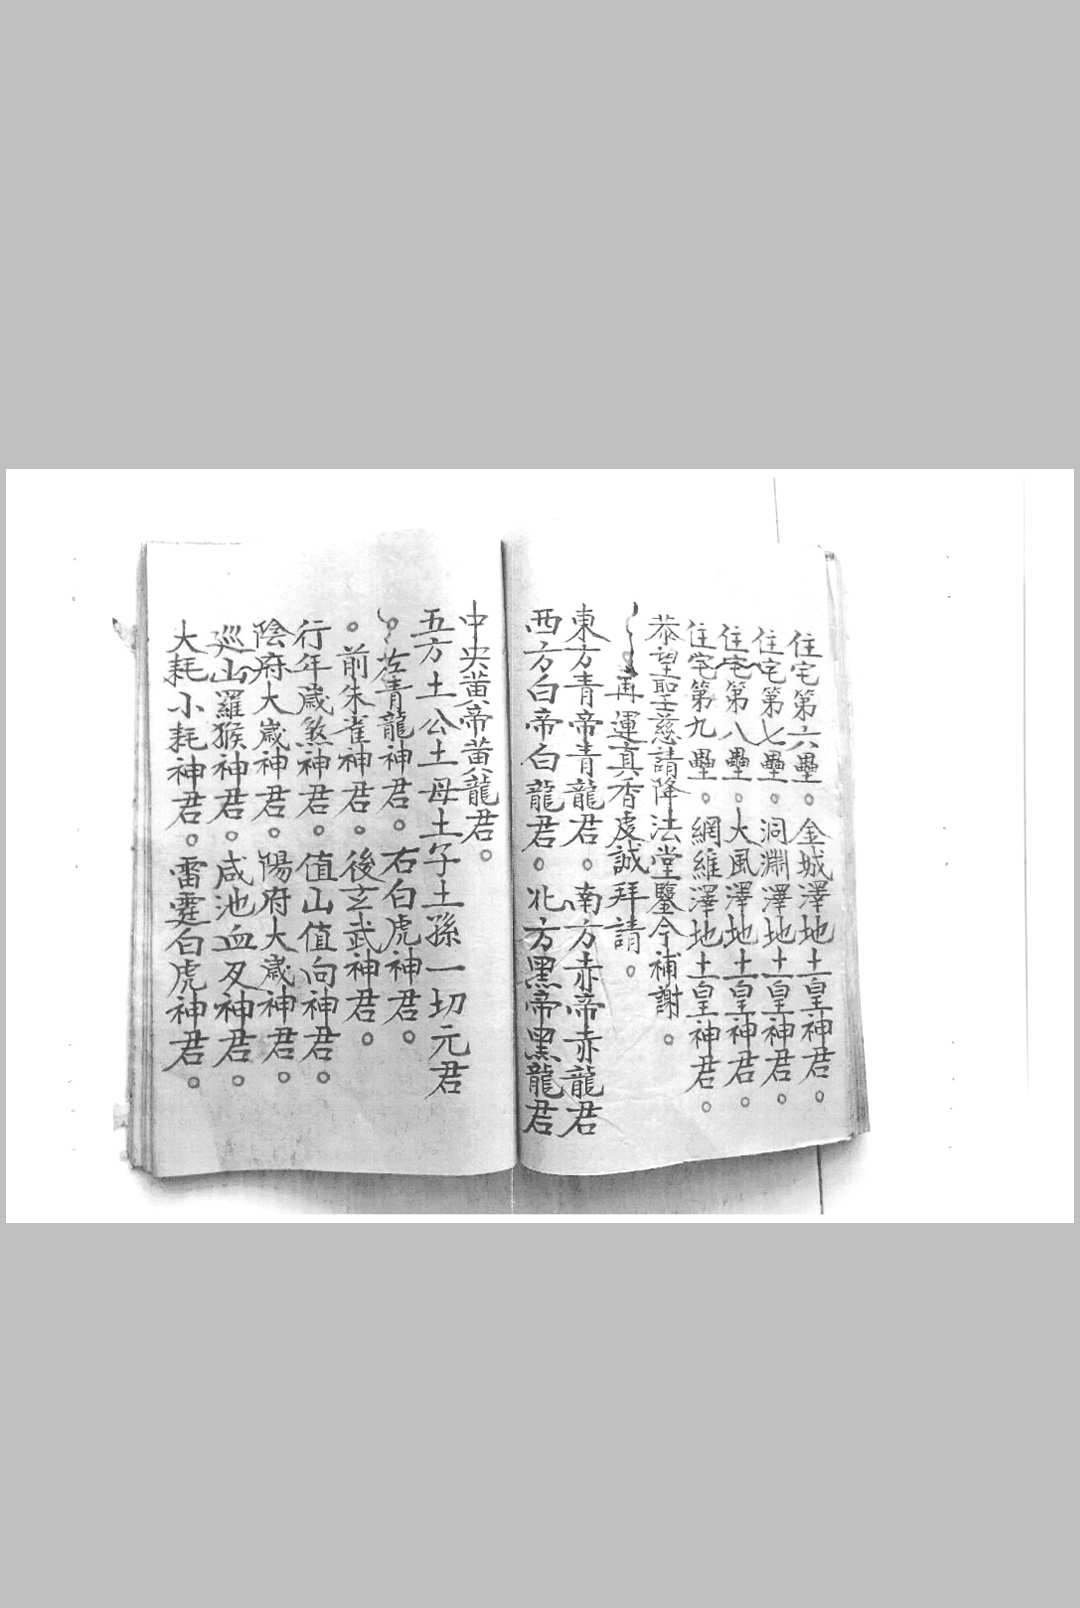 住宅第六壘。金城澤地土皇神君。
住宅第七壘。洞淵澤地土皇神君。
住宅第八壘。大風澤地土皇神君。
住宅第九壘。網維澤地土皇神君。
恭望聖慈請降法堂鑒今補謝。
。再運真香虔誠拜請。
東方青帝青龍君。南方赤帝赤龍君
西方白帝白龍君。北方黑帝黑龍君
中央黃帝黃龍君。
五方土公土母土子土孫一切元君
。左青龍神君。右白虎神君。
。前朱雀神君。後玄武神君。
行年歲煞神君。值山值向神君。
陰府大歲神君。陽府大歲神君。
巡山羅猴神君。咸池血刃神君。
大耗小耗神君。雷霆白虎神君。